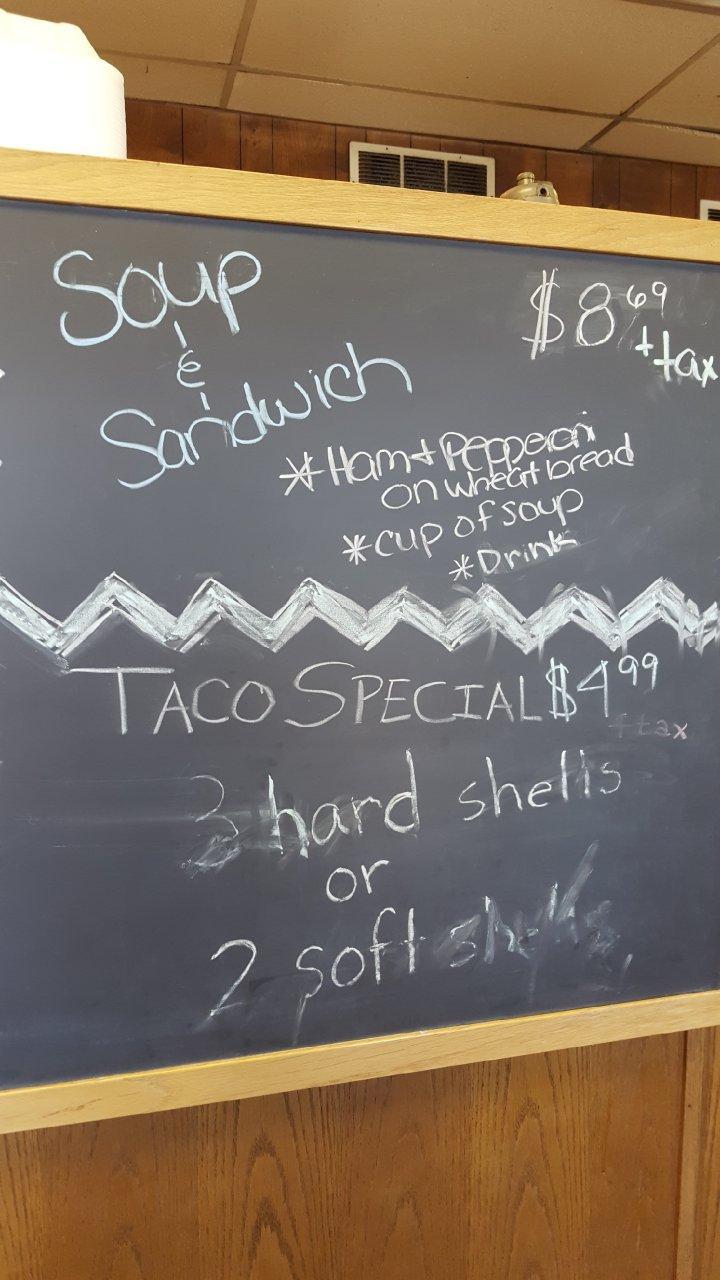 Soup
&
Sandwich
$8.69
+tax
*Ham + Pepperoni
on wheat bread
*cup of soup
*Drink
TACO SPECIAL $4.99
+tax
3 hard shells
or
2 soft shells